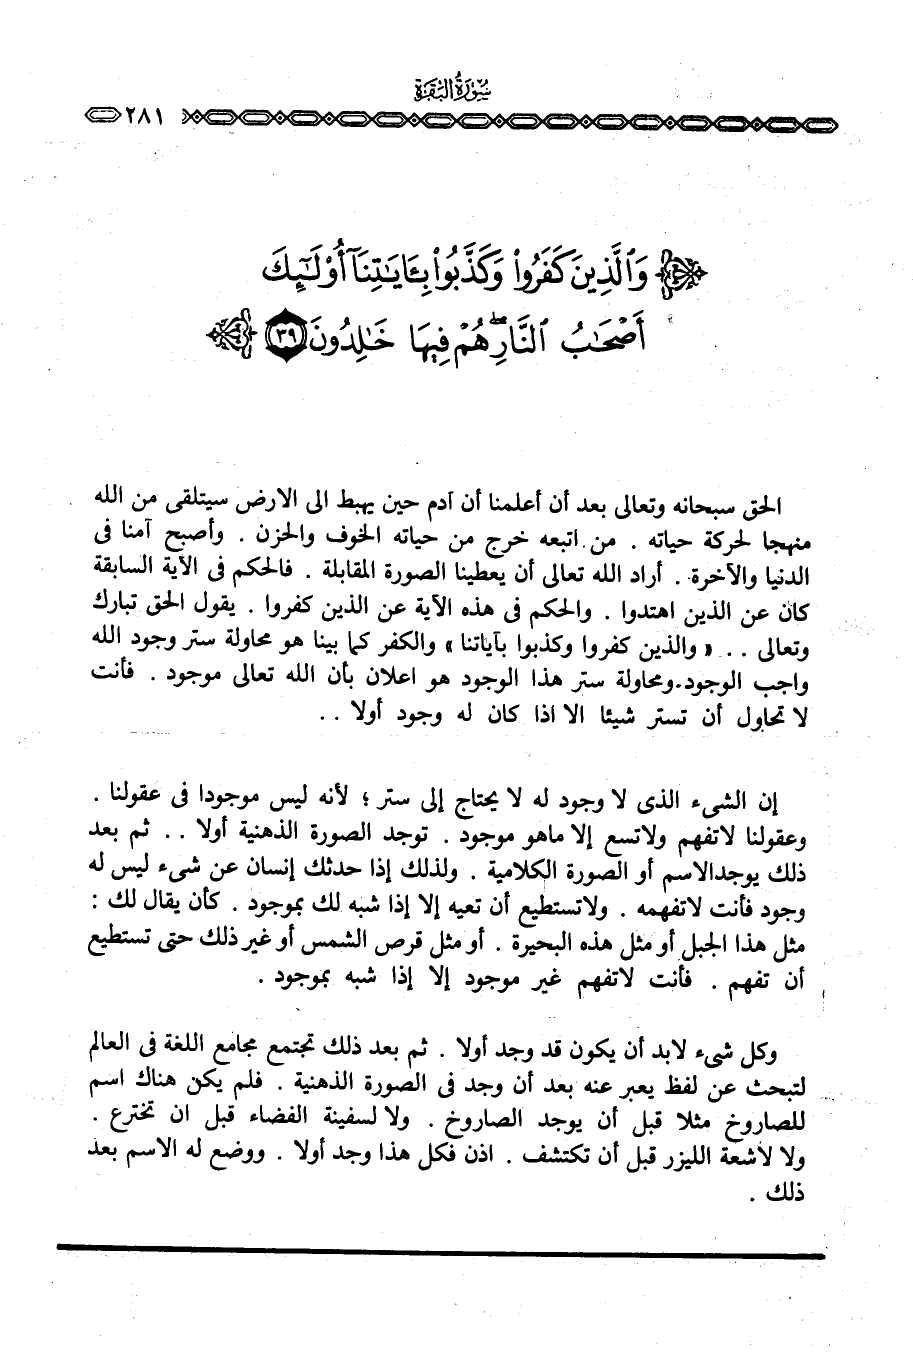 سُورَةُ البَقَرَة
٢٨١
وَٱلَّذِينَ كَفَرُوا۟ وَكَذَّبُوا۟ بِـَٔايَـٰتِنَآ أُو۟لَـٰٓئِكَ
أَصْحَـٰبُ ٱلنَّارِ ۖ هُمْ فِيهَا خَـٰلِدُونَ ٣٩
الحق سبحانه وتعالى بعد أن أعلمنا أن آدم حين يهبط الى الارض سيتلقى من الله
منهجا لحركة حياته . من اتبعه خرج من حياته الخوف والحزن . وأصبح آمنا فى
الدنيا والآخرة . أراد الله تعالى أن يعطينا الصورة المقابلة . فالحكم فى الآية السابقة
كان عن الذين اهتدوا . والحكم فى هذه الآية عن الذين كفروا . يقول الحق تبارك
وتعالى . . « والذين كفروا وكذبوا بآياتنا » والكفر كما بينا هو محاولة ستر وجود الله
واجب الوجود.ومحاولة ستر هذا الوجود هو اعلان بأن الله تعالى موجود . فأنت
لا تحاول أن تستر شيئا الا اذا كان له وجود أولا . .
إن الشىء الذى لا وجود له لا يحتاج إلى ستر ؛ لأنه ليس موجودا فى عقولنا .
وعقولنا لاتفهم ولاتسع إلا ماهو موجود . توجد الصورة الذهنية أولا . . ثم بعد
ذلك يوجدالاسم أو الصورة الكلامية . ولذلك إذا حدثك إنسان عن شىء ليس له
وجود فأنت لاتفهمه . ولاتستطيع أن تعيه إلا إذا شبه لك بموجود . كأن يقال لك :
مثل هذا الجبل أو مثل هذه البحيرة . أو مثل قرص الشمس أو غير ذلك حتى تستطيع
أن تفهم . فأنت لاتفهم غير موجود إلا إذا شبه بموجود .
وكل شىء لابد أن يكون قد وجد أولا . ثم بعد ذلك تجتمع مجامع اللغة فى العالم
لتبحث عن لفظ يعبر عنه بعد أن وجد فى الصورة الذهنية . فلم يكن هناك اسم
للصاروخ مثلا قبل أن يوجد الصاروخ . ولا لسفينة الفضاء قبل ان تخترع .
ولا لأشعة الليزر قبل أن تكتشف . اذن فكل هذا وجد أولا . ووضع له الاسم بعد
ذلك .